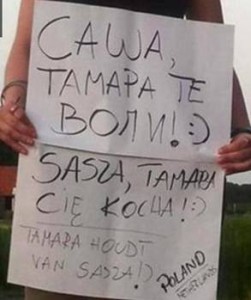 САША,
ТАМАРА ТЕ
ВОЛИ! :)
SASZA, TAMARA
CIĘ KOCHA! :)
TAMARA HOUDT
VAN SASZA! :)
POLAND
NETHERLANDS